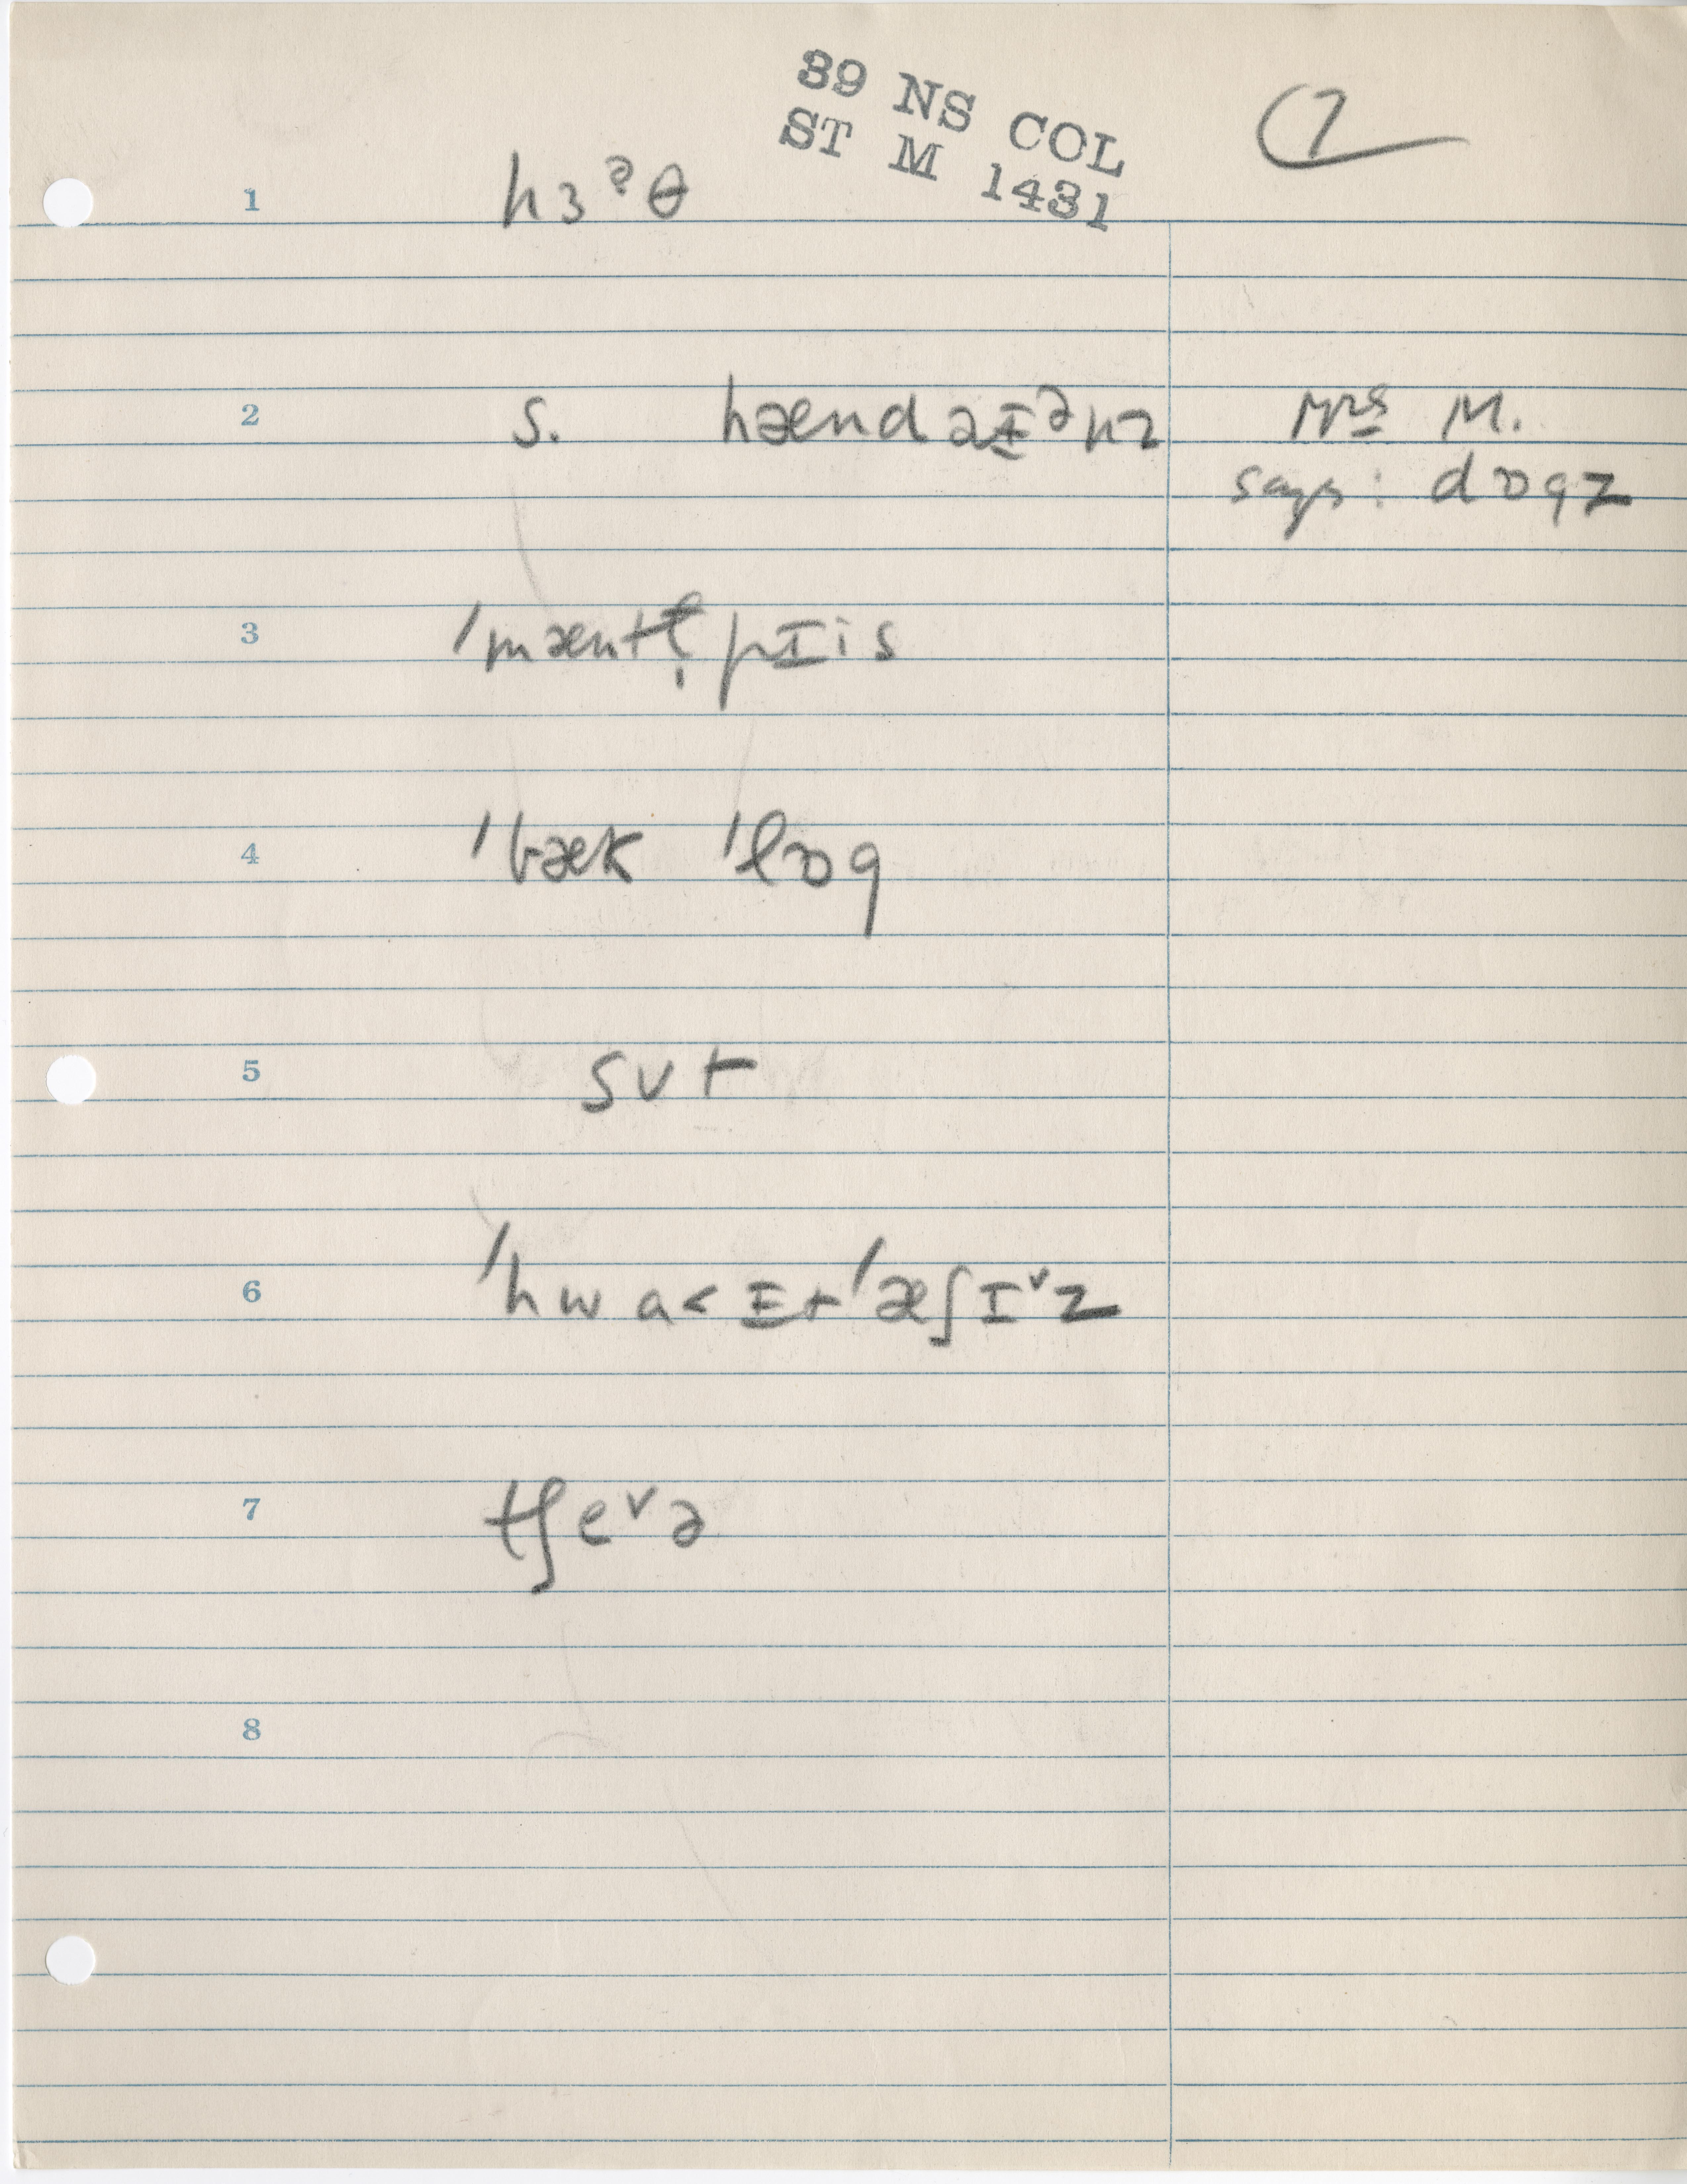 39 NS COL
ST M 1431
7
1 hɜᵊθ
2 s. hændaɪᵊnz Mrs M.
says: dɒgz
3 ˈmæntl̩pɪis
4 ˈbæk ˈlɒg
5 sʌt
6 ˈhwa<ɪtˈæʃɪˇz
7 tʃeˇə
8